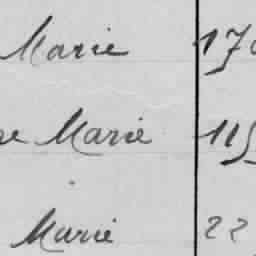 Marie 170
se Marie 115
Marie 22